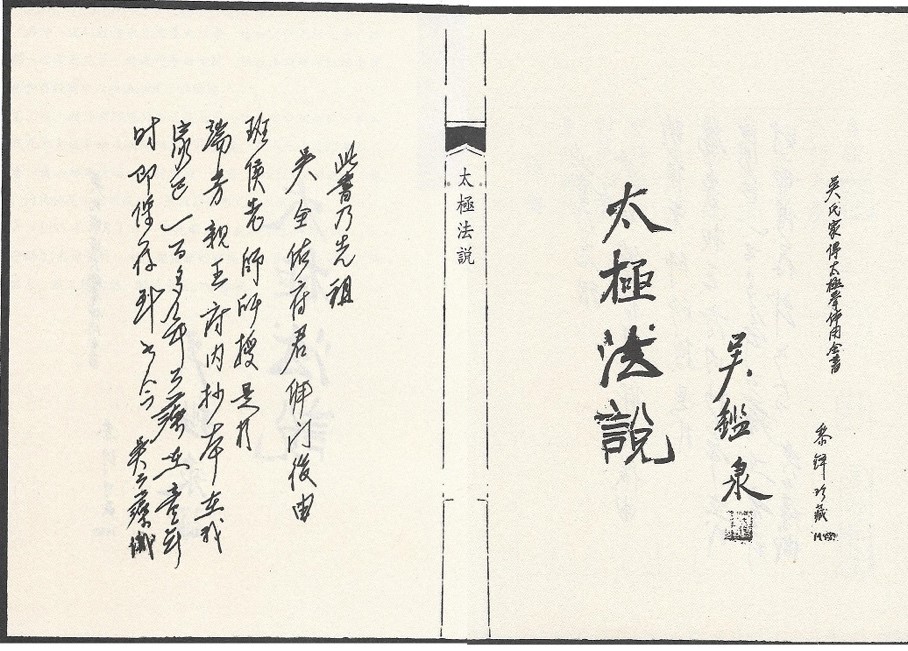 吳氏家傳太極拳体用全書
珍藏
吳鑑泉
太極法說
太極法說
此書乃先祖
吳全佑府君拜门後由
班侯老師所授是於
端芳親王府内抄本在我
家已一百多年公藻在童年
时即保存到如今 吳公藻識